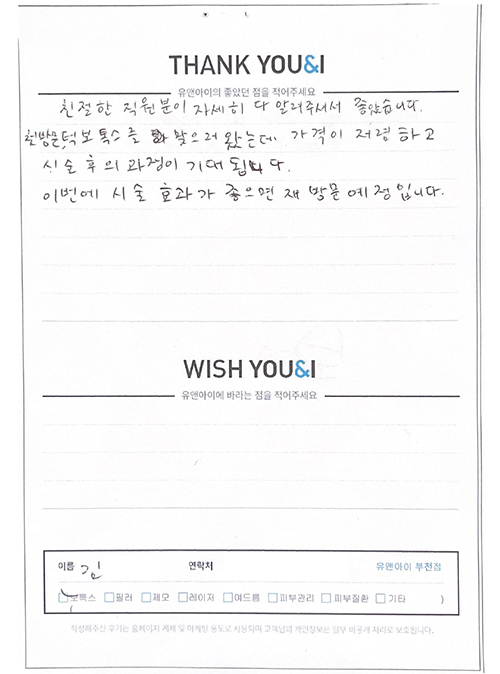 THANK YOU&I
유앤아이의 좋았던 점을 적어주세요
친절한 직원분이 자세히 다 알려주셔서 좋았습니다.
첫방문, 턱보톡스를 맞으러 왔는데 가격이 저렴하고
시술 후의 과정이 기대됩니다.
이번에 시술 효과가 좋으면 재 방문 예정입니다.
WISH YOU&I
유앤아이에 바라는 점을 적어주세요
이름 김 연락처 유앤아이 부천점
보톡스 필러 제모 레이저 여드름 피부관리 피부질환 기타 )
작성해주신 후기는 홈페이지 게재 및 마케팅 용도로 사용되며 고객님의 개인정보는 일부 비공개 처리로 보호됩니다.